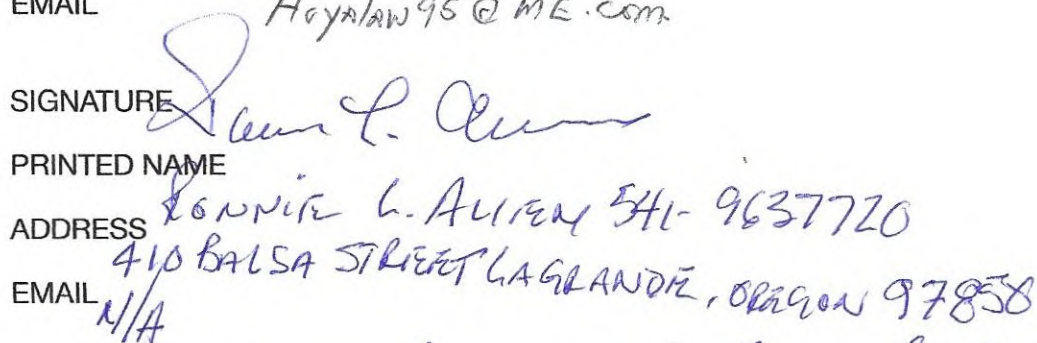 EMAIL Hoyalaw95@ME.com
SIGNATURE
PRINTED NAME
RONNIE L. ALLEN 541-9637720
ADDRESS
410 BALSA STREET LAGRANDE, OREGON 97858
EMAIL N/A